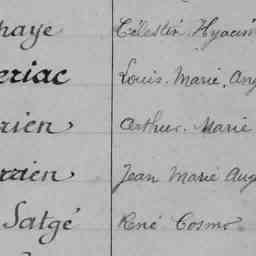 haye Célestin Hyacin
eriac Louis. Marie. Ang
rien Arthur. Marie
rrien Jean Marie Aug
Satgé René Cosme